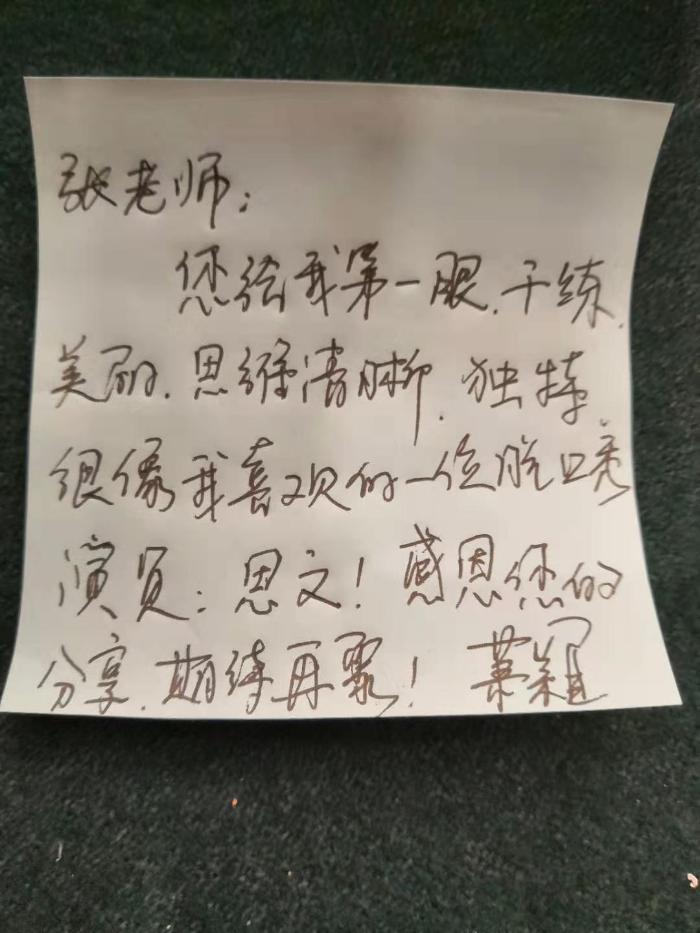 张老师：
您给我第一眼，干练，
美丽，思维清晰，独特
很像我喜欢的一位脱口秀
演员：思文！感恩您的
分享，期待再聚！